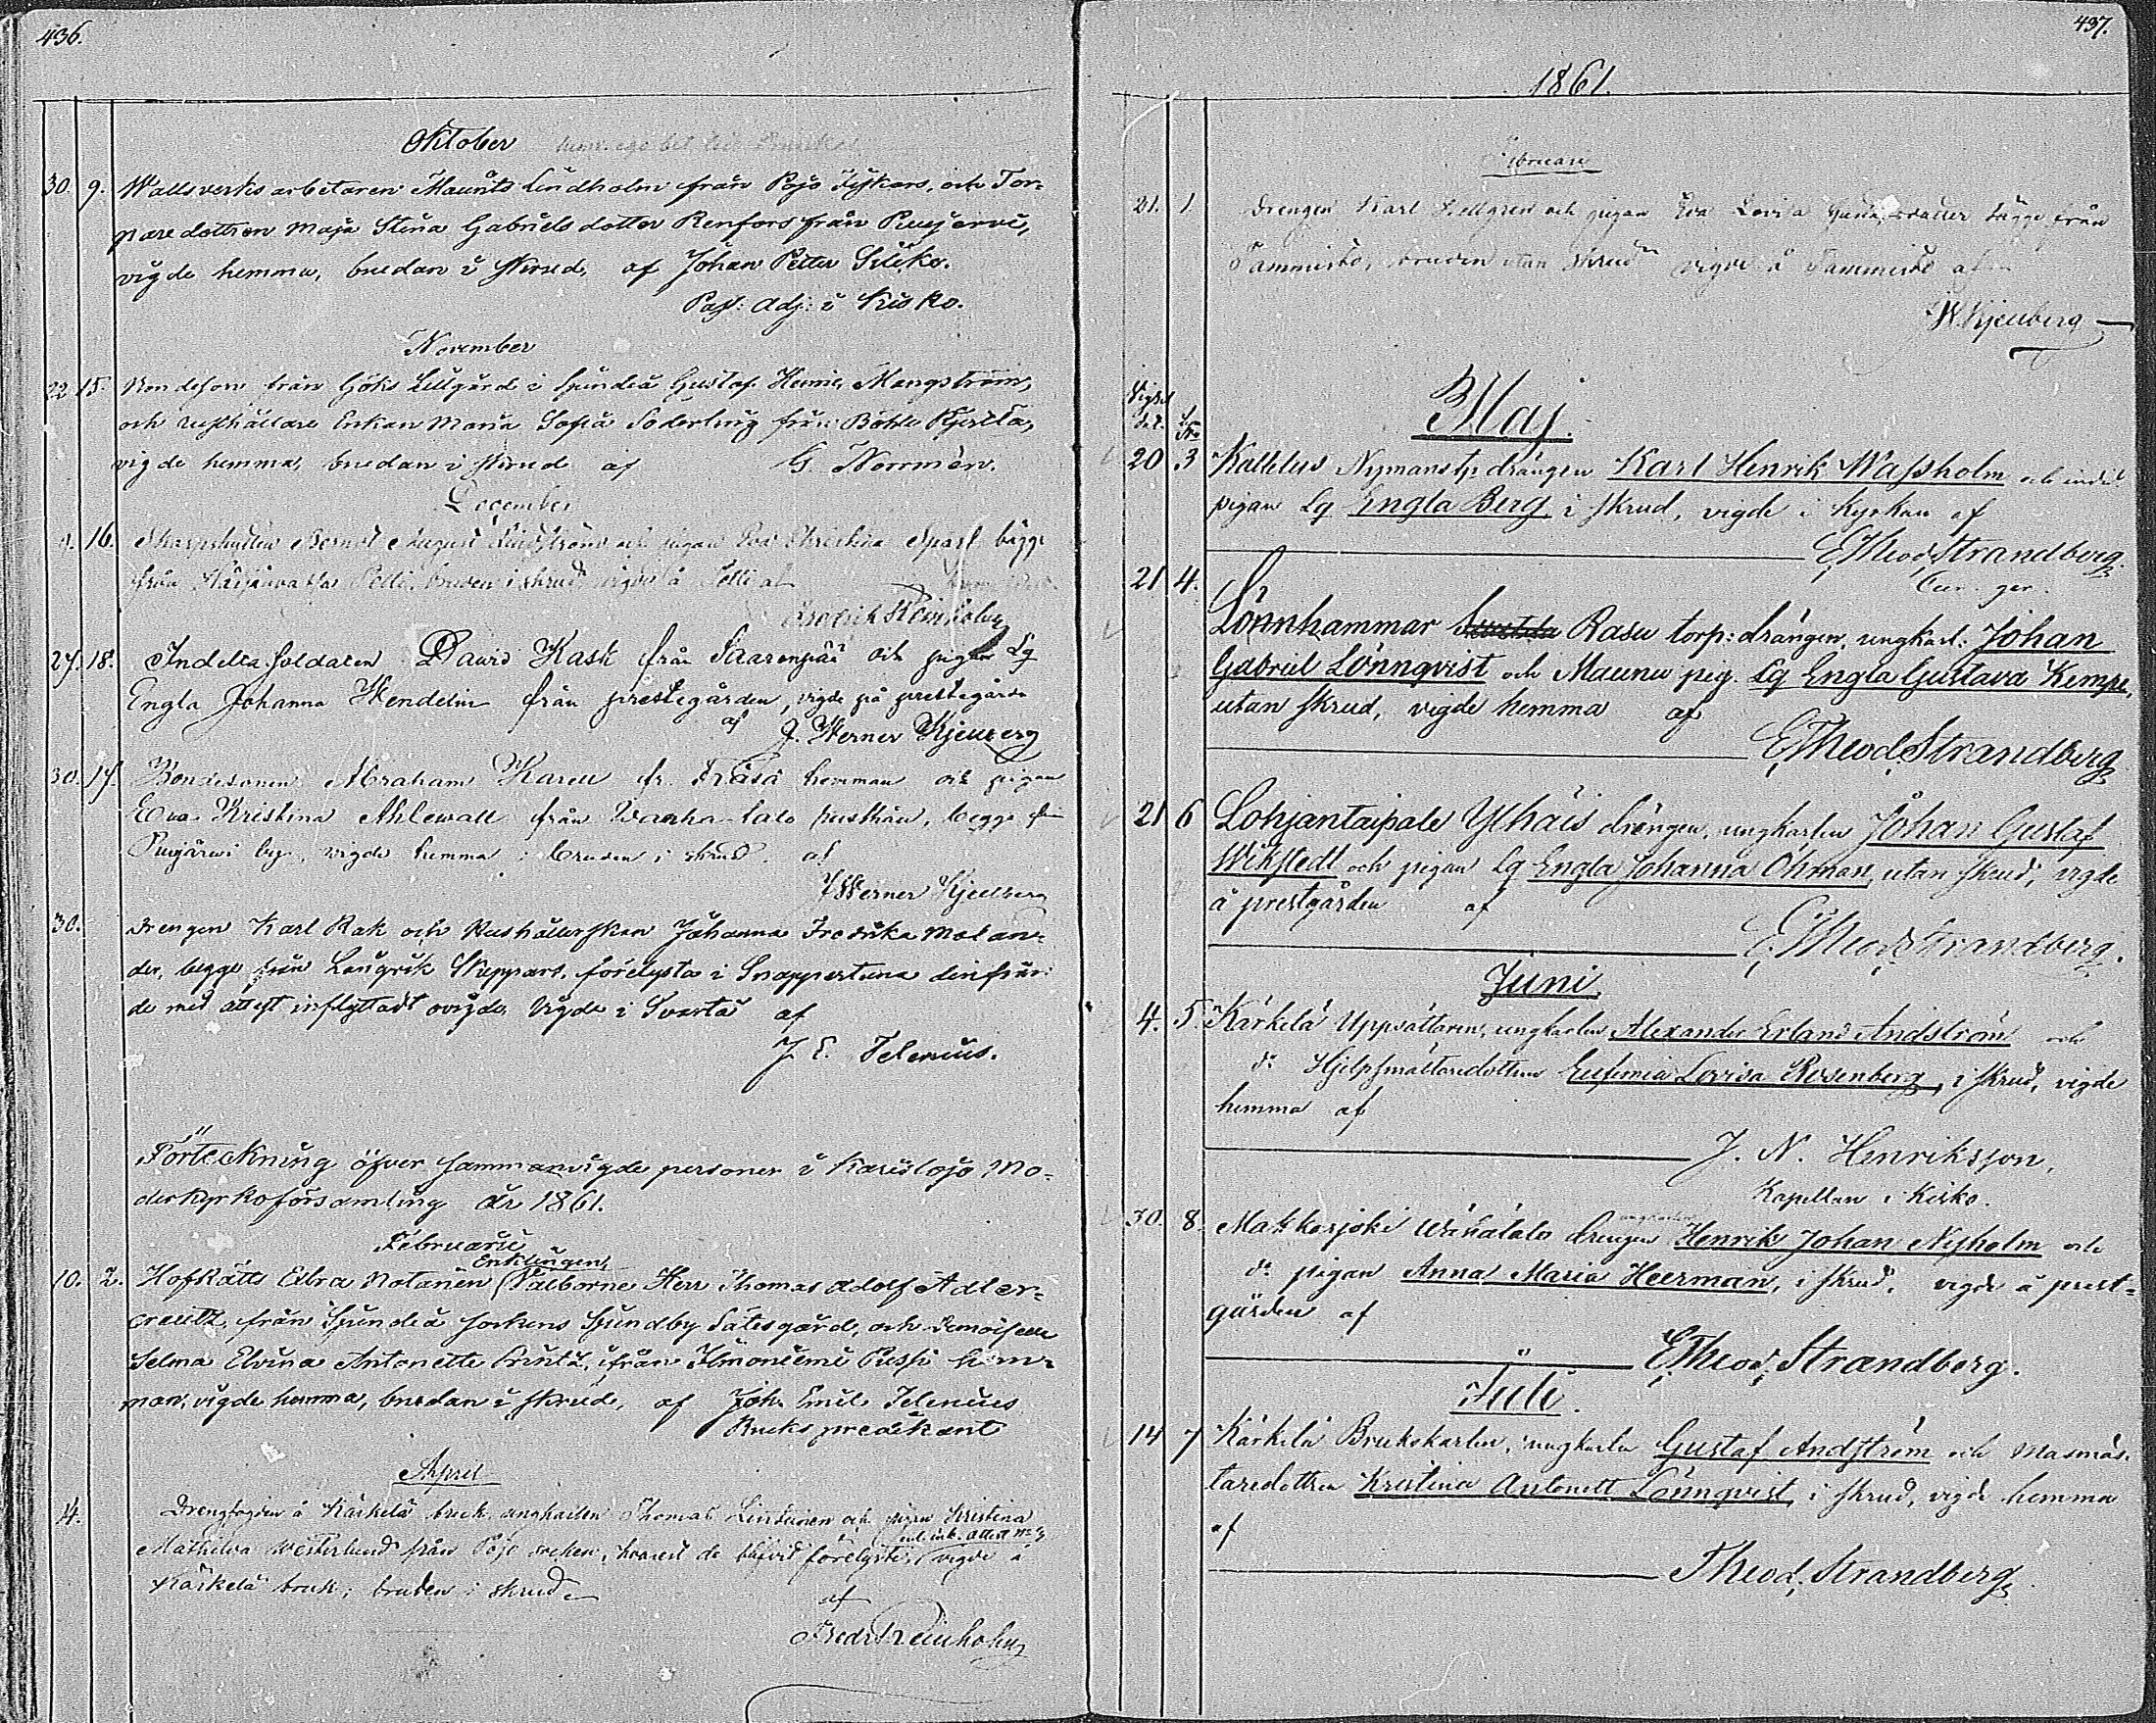 436.
Oktober
30. 9. Wallsverks arbetaren Maunts Lindholm från Pojo Fiskars, och Tor-
paredottren Maja Stina Gabrielsdotter Renfors från Puujervi,
vigde hemma, bruden i skrud, af Johan Petter Siliko.
Past: Adj: i Kisko.
November
22 15. Bondeson från Göks Lillgård i Sjundeå Gustaf Henric Mangström,
och Rusthållare Enkan Maria Sofia Söderling från Böhle Kjerila,
vigde hemma, bruden i skrud af G. Norrmén.
December
9. 16. Skarpskytten Bernd August Lindström och pigan Eva Christina Sparf bägge
från Petti, bruden i skrud, vigde å Petti af
Fredrik Reinholm
27. 18. Indelta soldaten David Kask från Saarenpää och pigan Lq
Engla Johanna Wendelin från prestegården, vigde på prestegården
af J. Werner Kjellberg
30. 17. Bondesonen Abraham Karen fr. Träsk hemman och pigan
Eva Kristina Ahlewall från Wanhatalo rusthåll, begge från
Puujärvi by, vigde hemma; bruden i skrud. af
J Werner Kjellberg
30. Drengen Karl Rak och Hushållerskan Johanna Fredrika Molan-
der, begge från Långvik Skeppars, förelysta i Snappertuna
de med attest inflyttadt ovigde, vigde i Svartå af
J. E. Telenius.
Förteckning öfver sammanvigde personer i Karislojo Mo-
derkyrkoförsamling år 1861.
Februarii
Enklingen,
10. 2. Hofrätts Extra Notarien Välborne Herr Thomas Adolf Adler-
creutz, från Sjundeå sockens Sjundby Sätesgård, och Demoiselle
Selma Elvina Antonette Printz, ifrån Ilmoniemi Pussi hem-
man, vigde hemma, bruden i skrud, af Joh. Emil Telenius
Bruks predikant
April
14. Drengfogden å Kärkelä bruk ungkarlen Thomas Lindroen och pigan Kristina
enl. ink. attest No 3
Mathilda Westerlund från Pojo socken, hvarest de blifvit förelyste, vigde å
Kärkelä bruk; bruden i skrud
af
Fredr Reinholm
437.
1861.
Februari
21. 1. Drengen Karl Hellgren och pigan Eva Lovisa Gustafsdotter bägge från
Sammisto, bruden utan skrud vigde å Sammisto af
W. Kjellberg
Vigsel
dat. No
Maj.
20 3 Kallelus Nymans tp drängen Karl Henrik Wassholm och indel.
pigan Lq Engla Berg i skrud, vigde i kyrkan af
E. Theod. Strandberg.
Cur. ger.
21 4. Lönnhammar Rasu torp: drängen, ungkarl: Johan
Gabriel Lönnqvist och Maunu pig. Lq Engla Gustava Kempe,
utan skrud, vigde hemma af
E. Theod. Strandberg
21 6 Lohjantaipale Ylhäis drängen, ungkarlen Johan Gustaf
Wikstedt och pigan Lq Engla Johanna Öhman, utan skrud, vigde
å prestgården af
E. Theod. Strandberg.
Juni
4. 5. Kärkelä Uppsättaren, ungkarlen Alexander Erland Andström och
d:o Hjelpsmältaredottren Eufemia Lovisa Rosenberg, i skrud, vigde
hemma af
J. N. Henriksson,
Kapellan i Kisko.
ungkarlen
30. 8. Makkarjoki Wähätalo drengen Henrik Johan Nyholm och
d:o pigan Anna Maria Heerman, i skrud, vigde å prest-
gården af
E. Theod. Strandberg.
Juli.
14 7 Kärkelä Brukskarlen, ungkarlen Gustaf Andström och Masmäs-
taredottren Kristina Antonett Lönnqvist, i skrud, vigde hemma
af
Theod. Strandberg